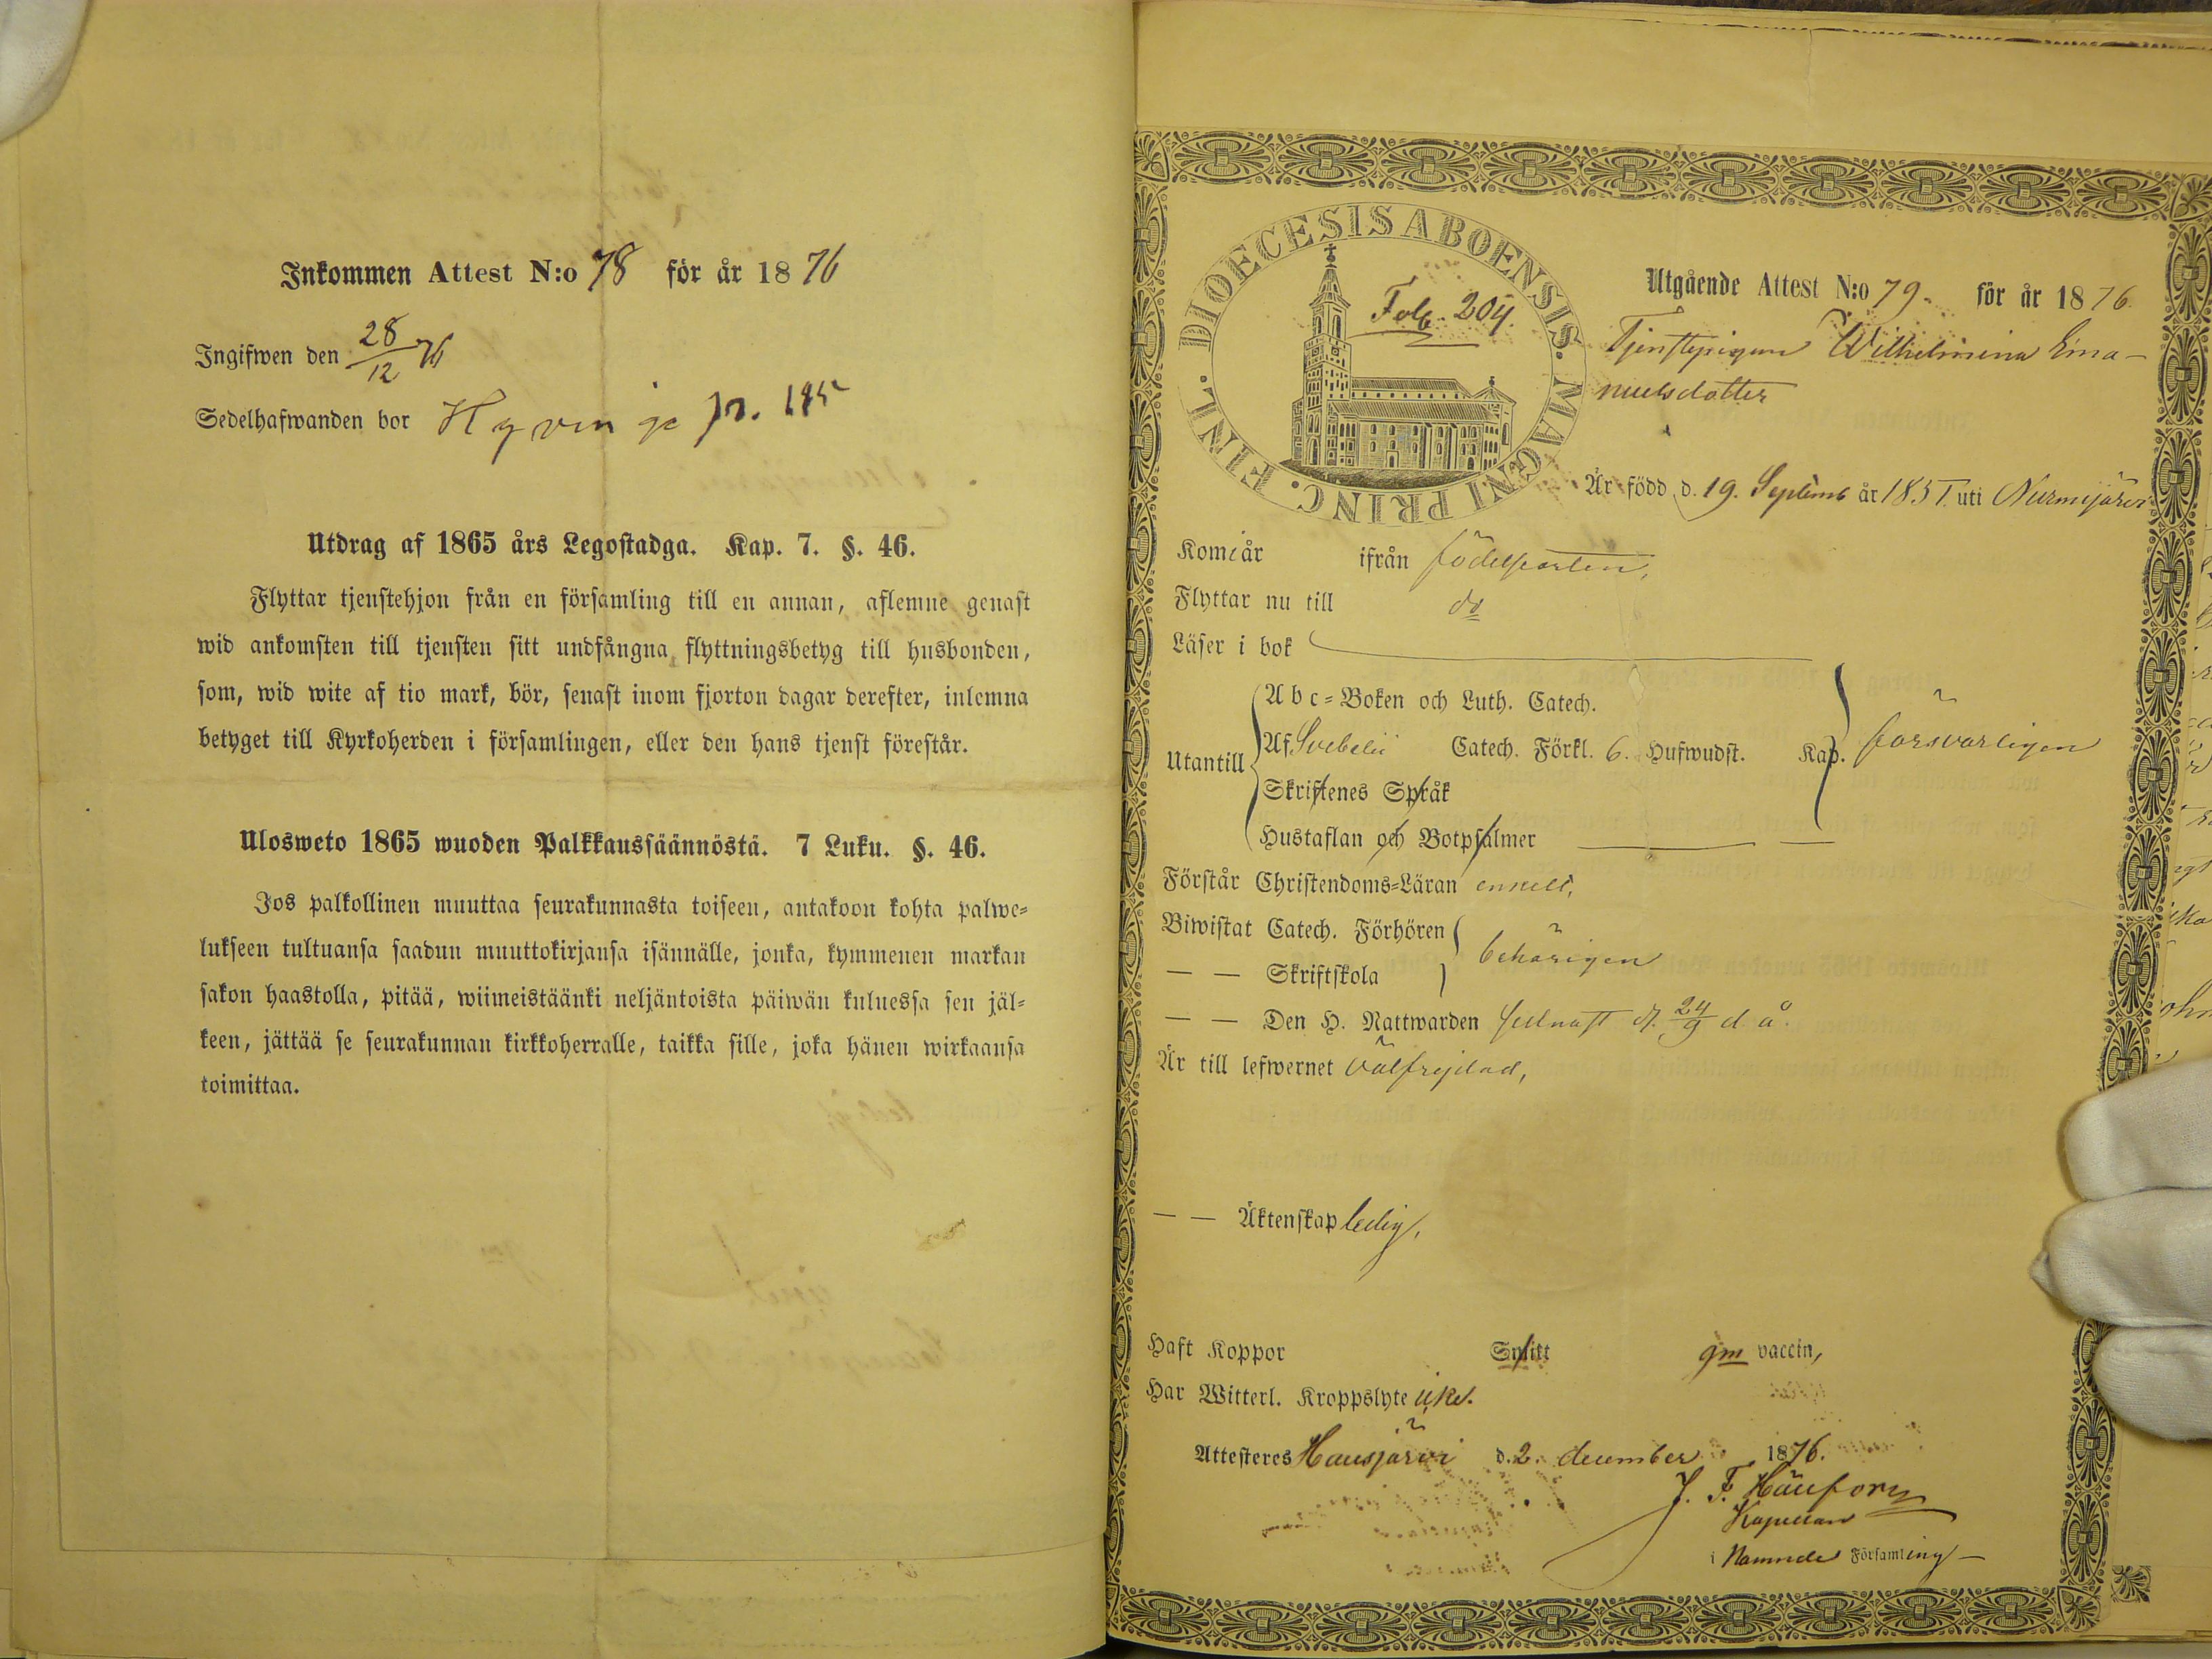 Inkommen Attest N:o 78 för år 1876
Ingifwen den 28/12 76
Sedelhafwanden bor Hyvinge p. 185
Utdrag af 1865 års Legostadga. Kap. 7. §. 46.
Flyttar tjenstehjon från en församling till en annan, aflemne genast
wid ankomsten till tjensten sitt undfångna flyttningsbetyg till husbonden,
som, wid wite af tio mark, bör, senast inom fjorton dagar derefter, inlemna
betyget till Kyrkoherden i församlingen, eller den hans tjenst förestår.
Ulosweto 1865 wuoden Palkkaussäännöstä. 7 Luku. §. 46.
Jos palkollinen muuttaa seurakunnasta toiseen, antakoon kohta palwe=
lukseen tultuansa saadun muuttokirjansa isännälle, jonka, kymmenen markan
sakon haastolla, pitää, wiimeistäänki neljäntoista päiwän kuluessa sen jäl=
keen, jättää se seurakunnan kirkkoherralle, taikka sille, joka hänen wirkaansa
toimittaa.
DIOECESIS ABOENSIS. MAGNI PRINC. FINL.
Folb. 204.
Utgående Attest N:o 79. för år 1876
Tjenstepigan Wilhelmina Ema-
nuelsdotter
Är född d. 19. Septemb år 185 uti Nurmijärvi
Kom år ifrån födelseorten,
Flyttar nu till do
Läser i bok
Utantill
Abc=Boken och Luth. Catech.
Af Svebelii Catech. Förkl. 6. Hufwudst. Kap. försvarligen
Skriftenes Språk
Hustaflan och Botpsalmer
Förstår Christendoms=Läran enkelt,
Biwistat Catech. Förhören
— — Skriftskola behörigen
— — Den H. Nattwarden sednast d. 24/9 d. å.
Är till lefwernet välfrejdad,
— — Äktenskap ledig,
Haft Koppor Snitt gm vaccin,
Har Witterl. Kroppslyte icke.
Attesteres Hausjärvi d. 2. december 1876.
J. F.
Kapellan
i Namnde Församling